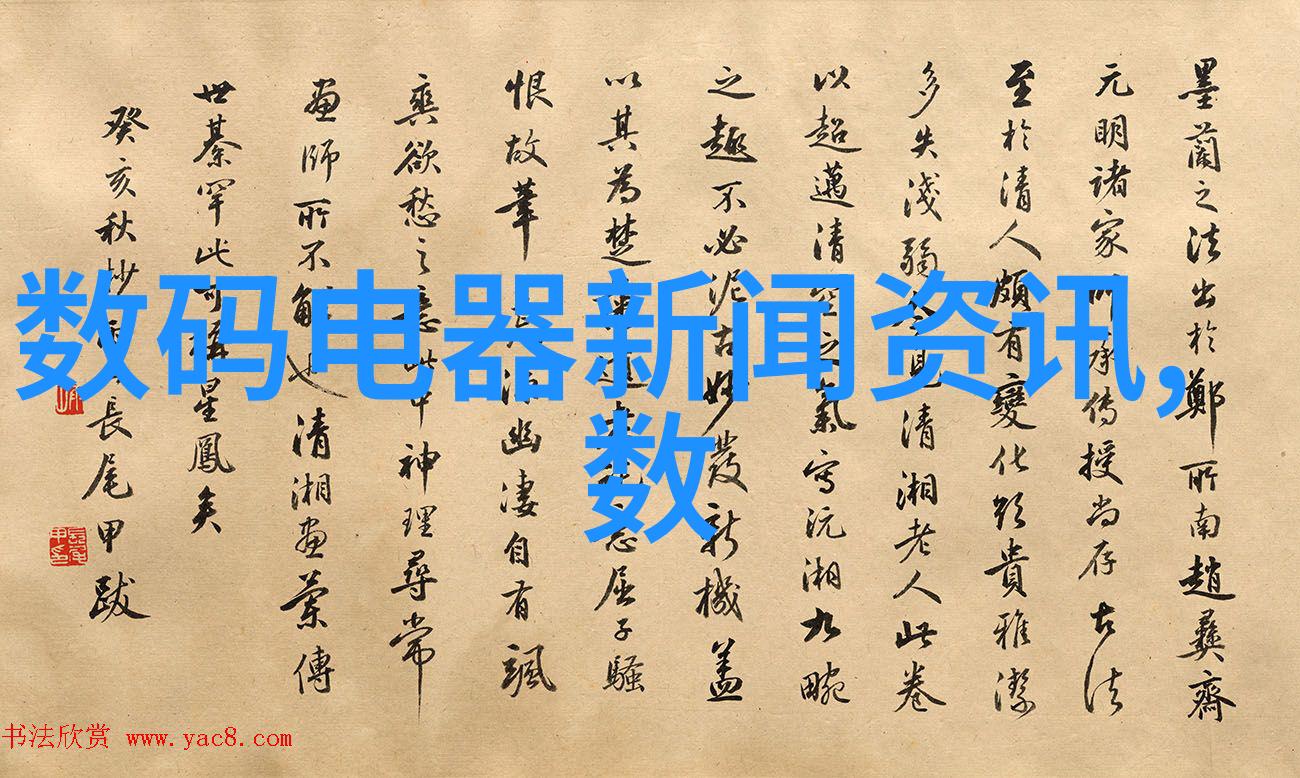 墨蘭之法出於鄭所南趙彝齋
元明諸家承傳授尚存古法
至於清人頗有變化貴雅潔
多失淺弱今見清湘老人此卷
以超邁清空之氣寫沅湘九畹
之趣不必泥古妙發新機蓋
以其為楚屈子騷
恨故筆幽凄自有颯
爽欲愁之意此中神理尋常
畫師所不解也清湘畫蘭傳
世綦罕此可稱星鳳矣
癸亥秋杪長尾甲跋
数码电器新闻资讯,
数
书法欣赏 www.yac8.com